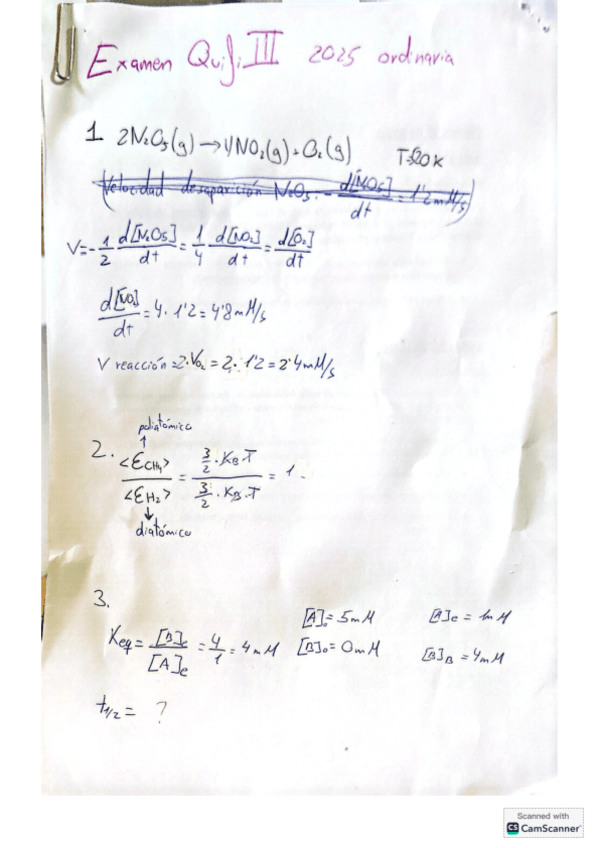 Examen Qui.fi. III 2025 ordinaria
1 2N₂O₅(g) → 4NO₂(g) + O₂(g) T=520K
(Velocidad desaparición N₂O₅. - d[NO₅]/dt = 1'2 mM/s)
V = - 1/2 d[N₂O₅]/dt = 1/4 d[NO₂]/dt = d[O₂]/dt
d[NO₂]/dt = 4 · 1'2 = 4'8 mM/s
V reacción = 2·V₀₂ = 2 · 1'2 = 2'4 mM/s
poliatómica
↑
2. <ECH₄> / <EH₂> = 3/2 · KB · T / 3/2 · KB · T = 1.
↓
diatómica
3.
[A]₀ = 5mM [A]e = 1mM
Keq = [B]e / [A]e = 4/1 = 4 mM [B]₀ = 0mM [B]B = 4mM
t1/2 = ?
Scanned with
CS CamScanner